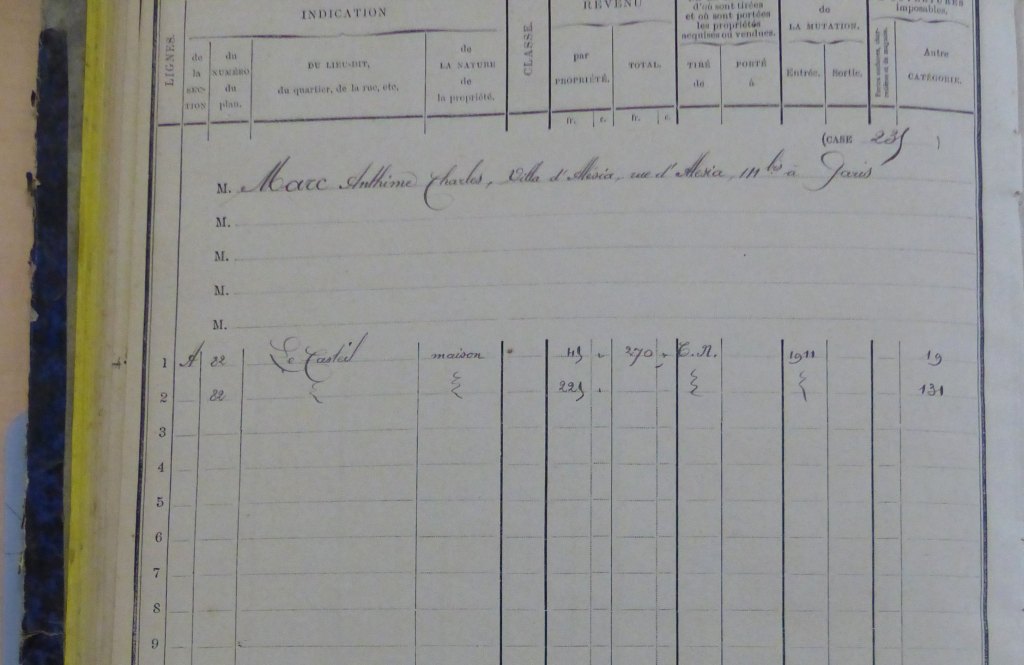 INDICATION
REVENU
d'où sont tirées
et où sont portées
les propriétés
acquises ou vendues.
de
LA MUTATION.
imposables.
LIGNES.
de
la
SEC-
TION
du
NUMÉRO
du
plan.
DU LIEU-DIT,
du quartier, de la rue, etc.
de
LA NATURE
de
la propriété.
CLASSE.
par
PROPRIÉTÉ.
TOTAL.
TIRÉ
de
PORTÉ
à
Entrée.
Sortie.
Autre
CATÉGORIE.
fr. c. fr. c.
(CASE 235 )
M. Marc Anthime Charles, Villa d'Alesia, rue d'Alesia, 111 bis à Paris
M.
M.
M.
M.
1 A 82 Le Casteil maison 45 " 270 " C.N. 1911 19
2 82 225 " 131
3
4
5
6
7
8
9